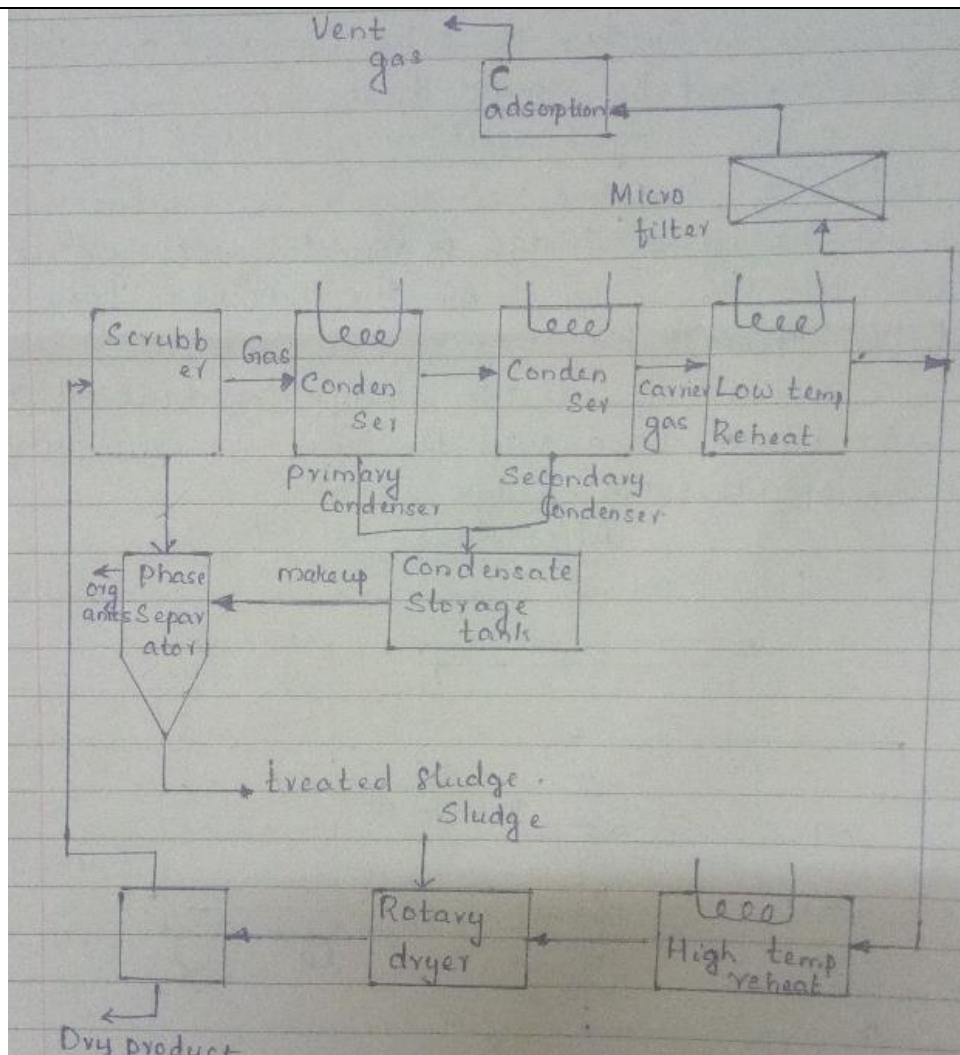 Vent
gas
C
adsorption
Micro
filter
Scrubb
er
Gas
Conden
Ser
Conden
Ser
Carrier
gas
Low temp
Reheat
Primary
Condenser
Secondary
Condenser
org
anics
Phase
Separ
ator
makeup
Condensate
Storage
tank
treated sludge.
Sludge
Rotary
dryer
High temp
reheat
Dry product